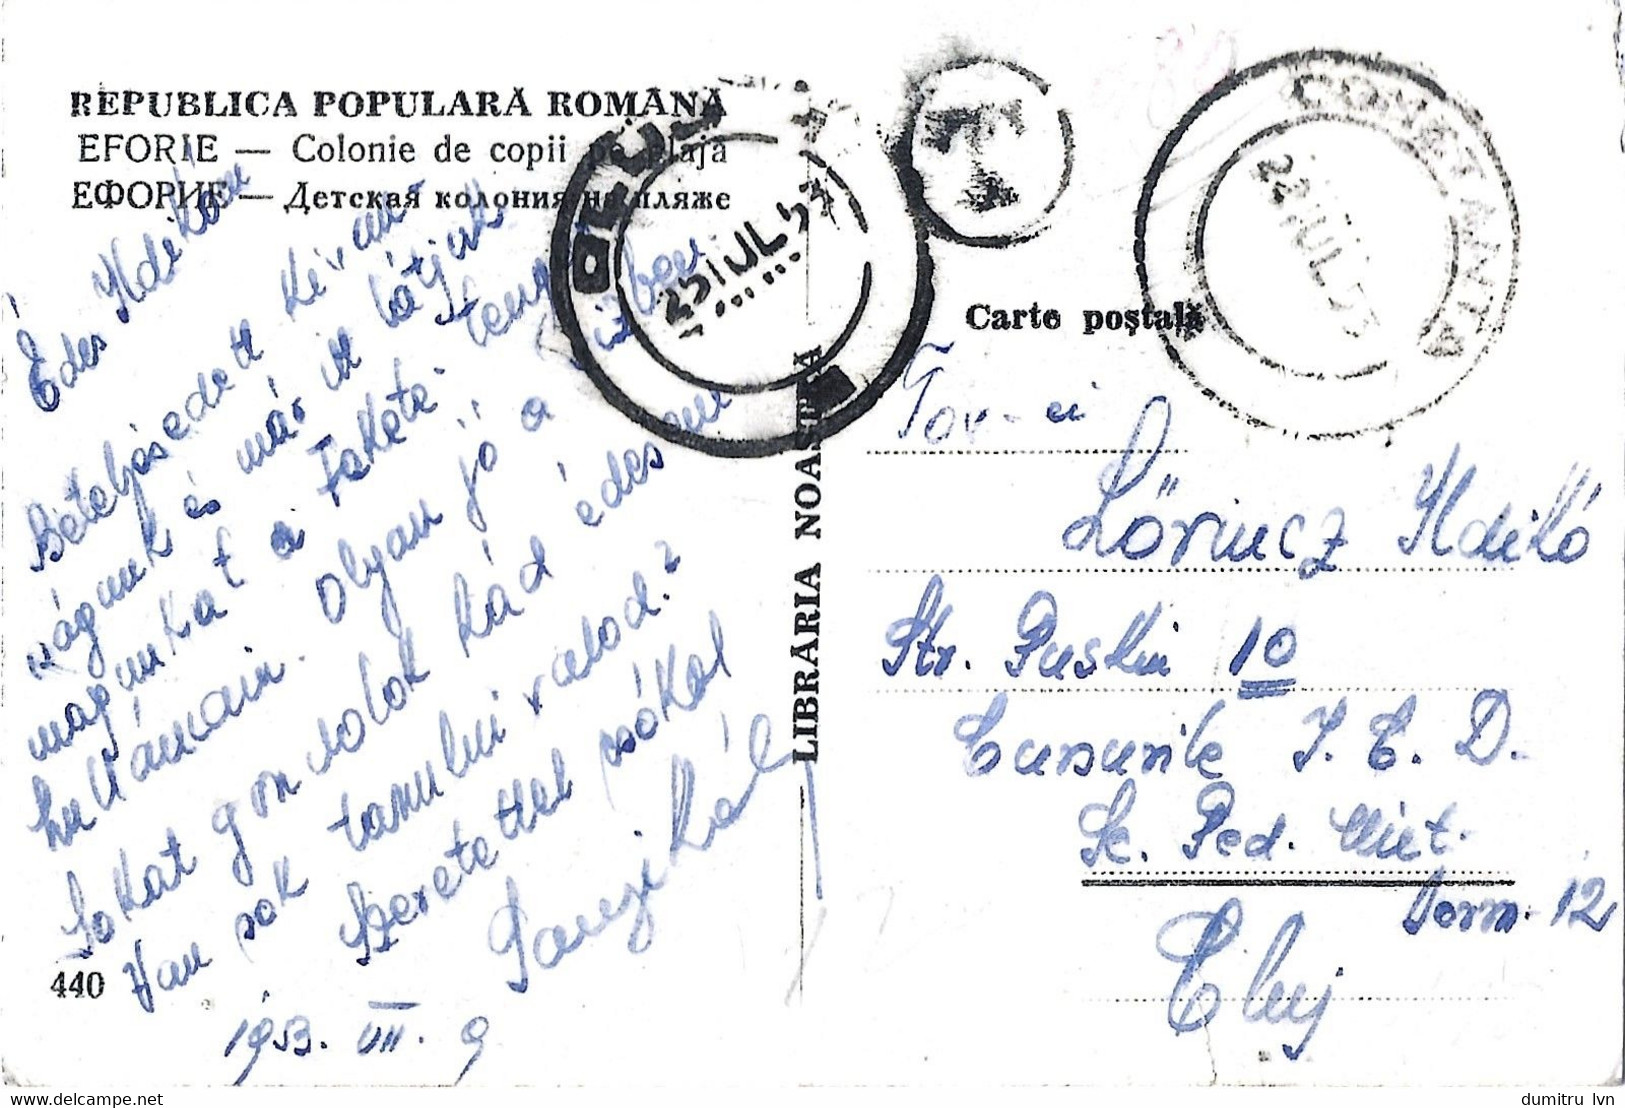 REPUBLICA POPULARĂ ROMÂNĂ
EFORIE — Colonie de copii pe plajă
ЕФОРИЕ — Детская колония на пляже
Édes Ildikóm
Beteljesedett kíván
ságunk és már itt látjuk
magunkat a Fekete tenger
hullámain. Olyan jó a vízben
Sokat gondolok Rád édesem
Van sok tanulni valod?
Szeretettel csókol
1953. VII. 9
440
LIBRĂRIA NOASTRĂ
CLUJ
23 IUL 53
T
CONSTANTA
22 IUL 53
Carte poștală
Tov-ei
Lőrincz Ildikó
Str. Puskin 10
Cursurile I. C. D.
Sc. Ped. Mixt.
Dorm. 12
Cluj
HipPostcard.com
dumitru lvn